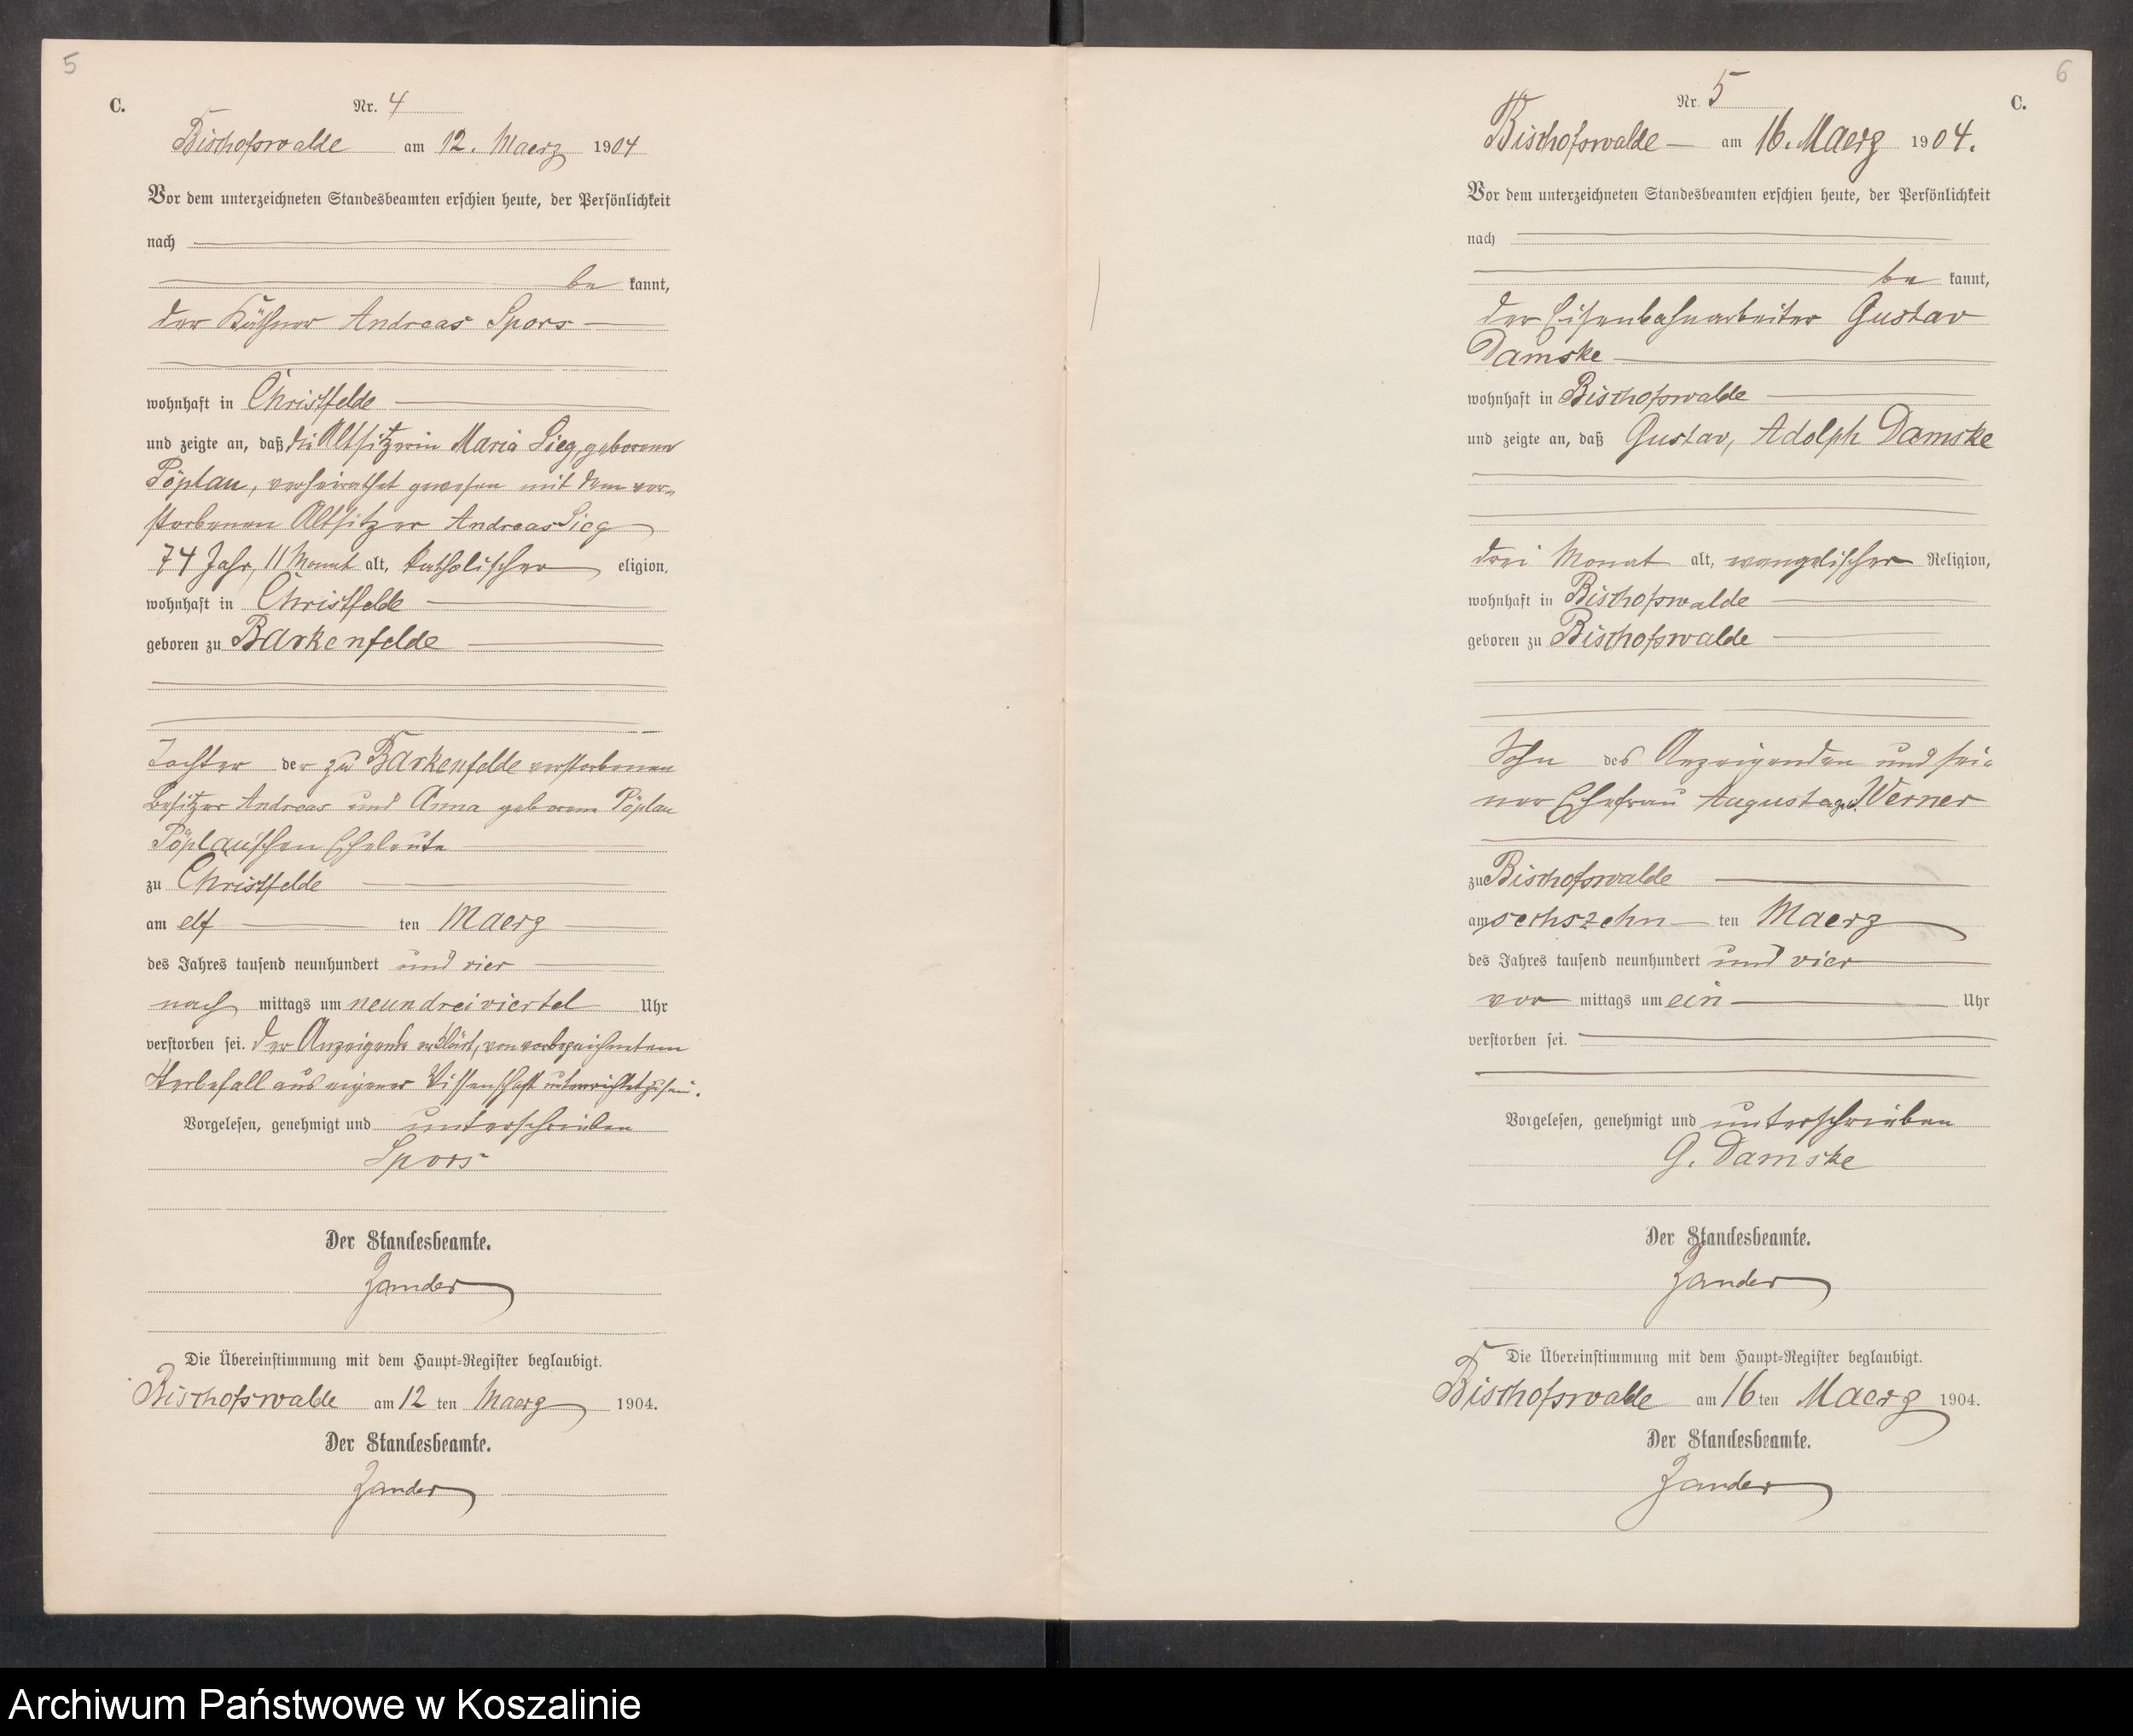 5
C.
Nr. 4
Bischofswalde am 12. Maerz 1904
Vor dem unterzeichneten Standesbeamten erschien heute, der Persönlichkeit
nach
be kannt,
der Käthner Andreas Spors
wohnhaft in Christfelde
und zeigte an, daß die Altsitzerin Maria Sieg, geborene
Pöplau, verheirathet gewesen mit dem ver-
storbenen Altsitzer Andreas Sieg
74 Jahr, 11 Monat alt, katholischer eligion,
wohnhaft in Christfelde
geboren zu Barkenfelde
Tochter der zu Barkenfelde verstorbenen
Besitzer Andreas und Anna geborene Pöplau
Pöplau'schen Eheleute
zu Christfelde
am elf ten Maerz
des Jahres tausend neunhundert und vier
nach mittags um neundreiviertel Uhr
verstorben sei. Der Anzeigende erklärt, von vorbezeichnetem
Sterbefall aus eigener Wissenschaft unterrichtet zu sein.
Vorgelesen, genehmigt und unterschrieben
Spors
Der Standesbeamte.
Zander
Die Übereinstimmung mit dem Haupt-Register beglaubigt.
Bischofswalde am 12 ten Maerz 1904.
Der Standesbeamte.
Zander
6
C.
Nr. 5
Bischofswalde am 16. Maerz 1904.
Vor dem unterzeichneten Standesbeamten erschien heute, der Persönlichkeit
nach
be kannt,
der Eisenbahnarbeiter Gustav
Damske
wohnhaft in Bischofswalde
und zeigte an, daß Gustav, Adolph Damske
drei Monat alt, evangelischer Religion,
wohnhaft in Bischofswalde
geboren zu Bischofswalde
Sohn des Anzeigenden und sei-
ner Ehefrau Augusta geb. Werner
zu Bischofswalde
am sechszehn ten Maerz
des Jahres tausend neunhundert und vier
vor mittags um ein Uhr
verstorben sei.
Vorgelesen, genehmigt und unterschrieben
G. Damske
Der Standesbeamte.
Zander
Die Übereinstimmung mit dem Haupt-Register beglaubigt.
Bischofswalde am 16 ten Maerz 1904.
Der Standesbeamte.
Zander
Archiwum Państwowe w Koszalinie